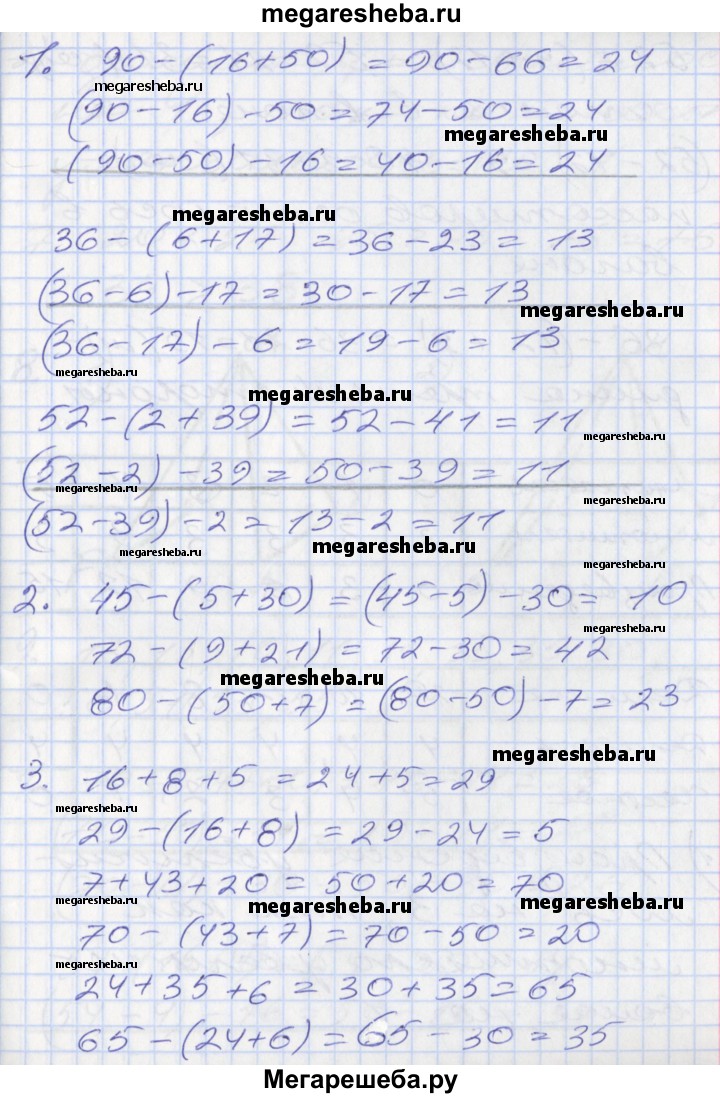 megaresheba.ru
1. 90-(16+50) = 90-66=24
megaresheba.ru
(90-16)-50=74-50=24
megaresheba.ru
(90-50)-16=40-16=24
megaresheba.ru
36-(6+17)=36-23=13
(36-6)-17=30-17=13
megaresheba.ru
(36-17)-6=19-6=13
megaresheba.ru
megaresheba.ru
52-(2+39)=52-41=11
megaresheba.ru
(52-2)-39=50-39=11
megaresheba.ru
megaresheba.ru
(52-39)-2=13-2=11
megaresheba.ru
megaresheba.ru
megaresheba.ru
2. 45-(5+30)=(45-5)-30=10
megaresheba.ru
72-(9+21)=72-30=42
megaresheba.ru
80-(50+7)=(80-50)-7=23
megaresheba.ru
3. 16+8+5=24+5=29
megaresheba.ru
29-(16+8)=29-24=5
7+43+20=50+20=70
megaresheba.ru
megaresheba.ru
megaresheba.ru
70-(43+7)=70-50=20
megaresheba.ru
24+35+6=30+35=65
65-(24+6)=65-30=35
Мегарешеба.ру